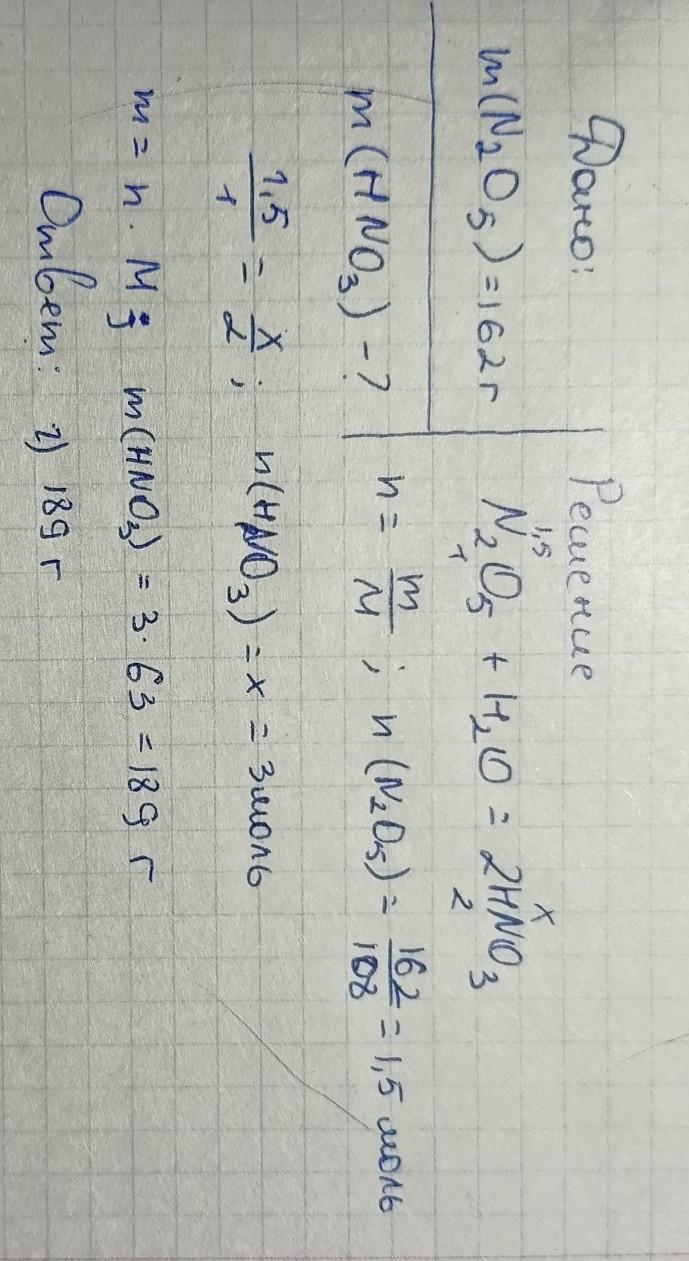 Дано:
m(N₂O₅)=162г
m(HNO₃)-?
Решение
1,5 x
N₂O₅ + H₂O = 2HNO₃
1 2
n = m/M ; n(N₂O₅) = 162/108 = 1,5 моль
1,5/1 = x/2 ; n(HNO₃) = x = 3моль
m = n · M; m(HNO₃) = 3·63 = 189 г
Ответ: 2) 189 г